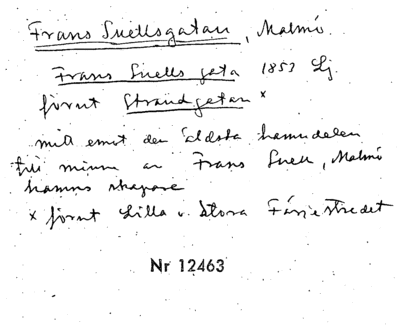 Frans Suellsgatan, Malmö.
Frans Suells gata 1853 Lj.
förut Strandgatan x
mitt emot den äldsta hamndelen
till minne av Frans Suell, Malmö
hamns skapare
x förut Lilla o. Stora Färjestredet
Nr 12463